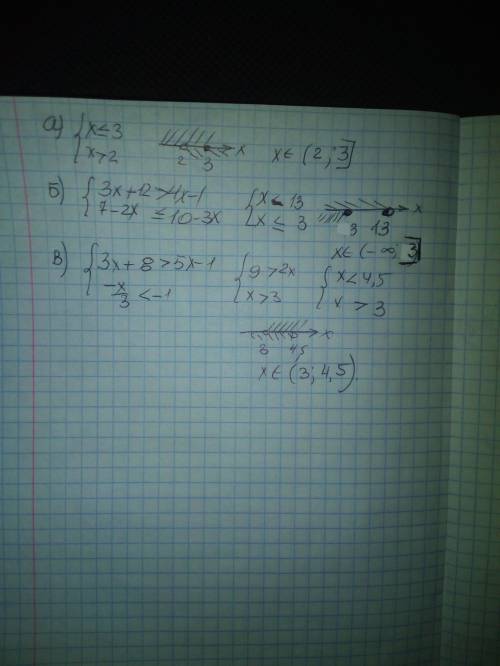 а) { x ≤ 3
x > 2
2 3 x
x ∈ (2; 3]
Б) { 3x + 12 > 4x - 1
7 - 2x ≤ 10 - 3x
{ x < 13
x ≤ 3
3 13 x
x ∈ (-∞; 3]
В) { 3x + 8 > 5x - 1
-x/3 < -1
{ 9 > 2x
x > 3
{ x < 4,5
x > 3
3 4,5 x
x ∈ (3; 4,5).